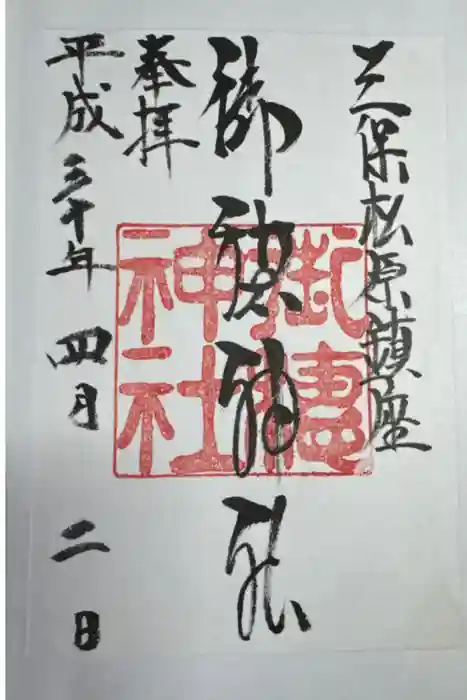 三保松原鎮座
御穂神社
奉拝
平成三十年四月二日
御穂神社